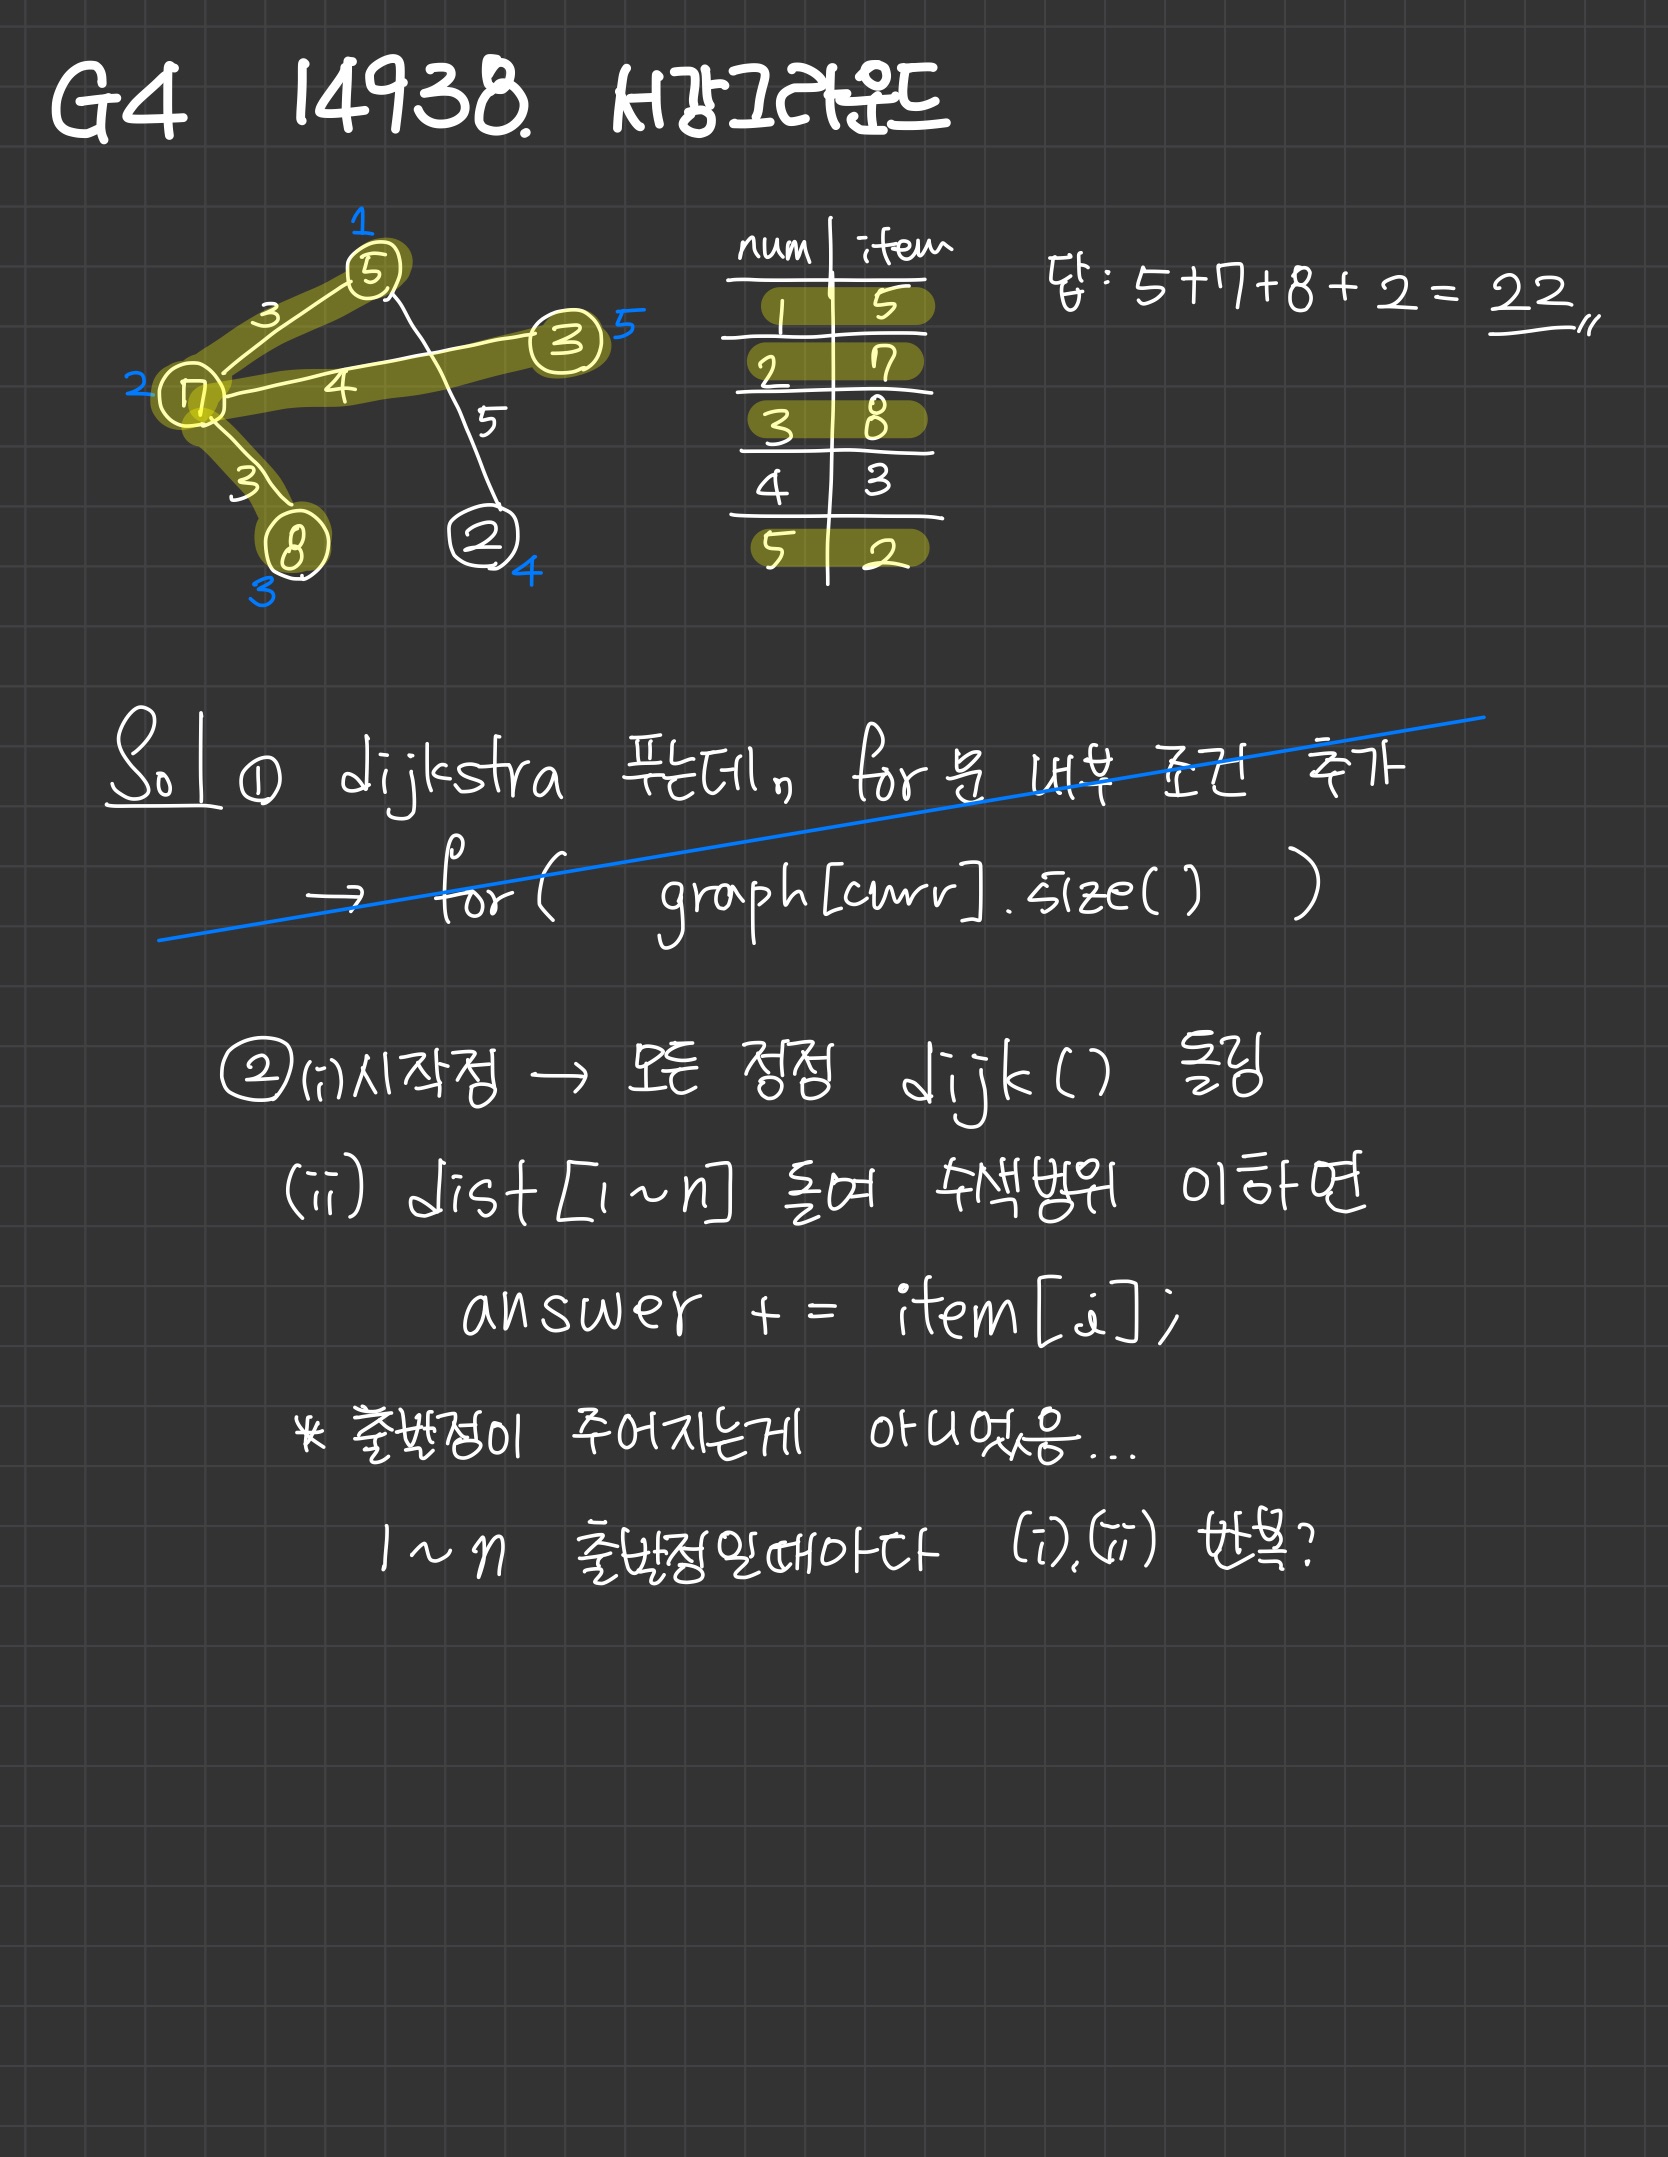 G4 14938. 서강그라운드
1
5
3
3 5
2 7 4
5
3
8 2
3 4
num item
1 5
2 7
3 8
4 3
5 2
답: 5+7+8+2 = 22
Sol ① dijkstra 푸는데, for문 내부 조건 추가
→ for( graph[curr].size() )
② (i) 시작점 → 모든 정점 dijk() 돌림
(ii) dist[1~n] 돌며 수색범위 이하면
answer += item[i];
* 출발점이 주어지는게 아니었음...
1~n 출발점일때마다 (i),(ii) 반복?